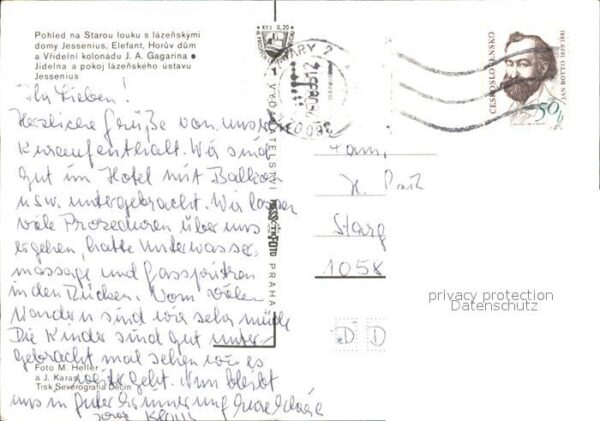 Pohled na Starou louku s lázeňskými
domy Jessenius, Elefant, Horův dům
a Vřídelní kolonádu J. A. Gagarina •
Jídelna a pokoj lázeňského ústavu
Jessenius
Ihr Lieben!
Herzliche Grüße von unserem
Kuraufenthalt. Wir sind
gut im Hotel mit Balkon
usw. untergebracht. Wir lassen
viele Prozeduren über uns
ergehen, hatte Unterwasser-
massage und Gasspritzen
in den Rücken. Vom vielen
Wandern sind wir sehr müde
Die Kinder sind gut unter-
gebracht mal sehen wie es
weiter geht. Nun bleibt
uns in guter Erinnerung
Klaus
Foto M. Heller
a J. Karas
Tisk Severografia Děčín
KčS 0,20
VYDAVATELSTVÍ PRESSFOTO PRAHA
VARY 2
ČESKOSLOVENSKO
JAN BOTTO 1829 1881
50 h
Fam.
H.
1058
privacy protection
Datenschutz
D D